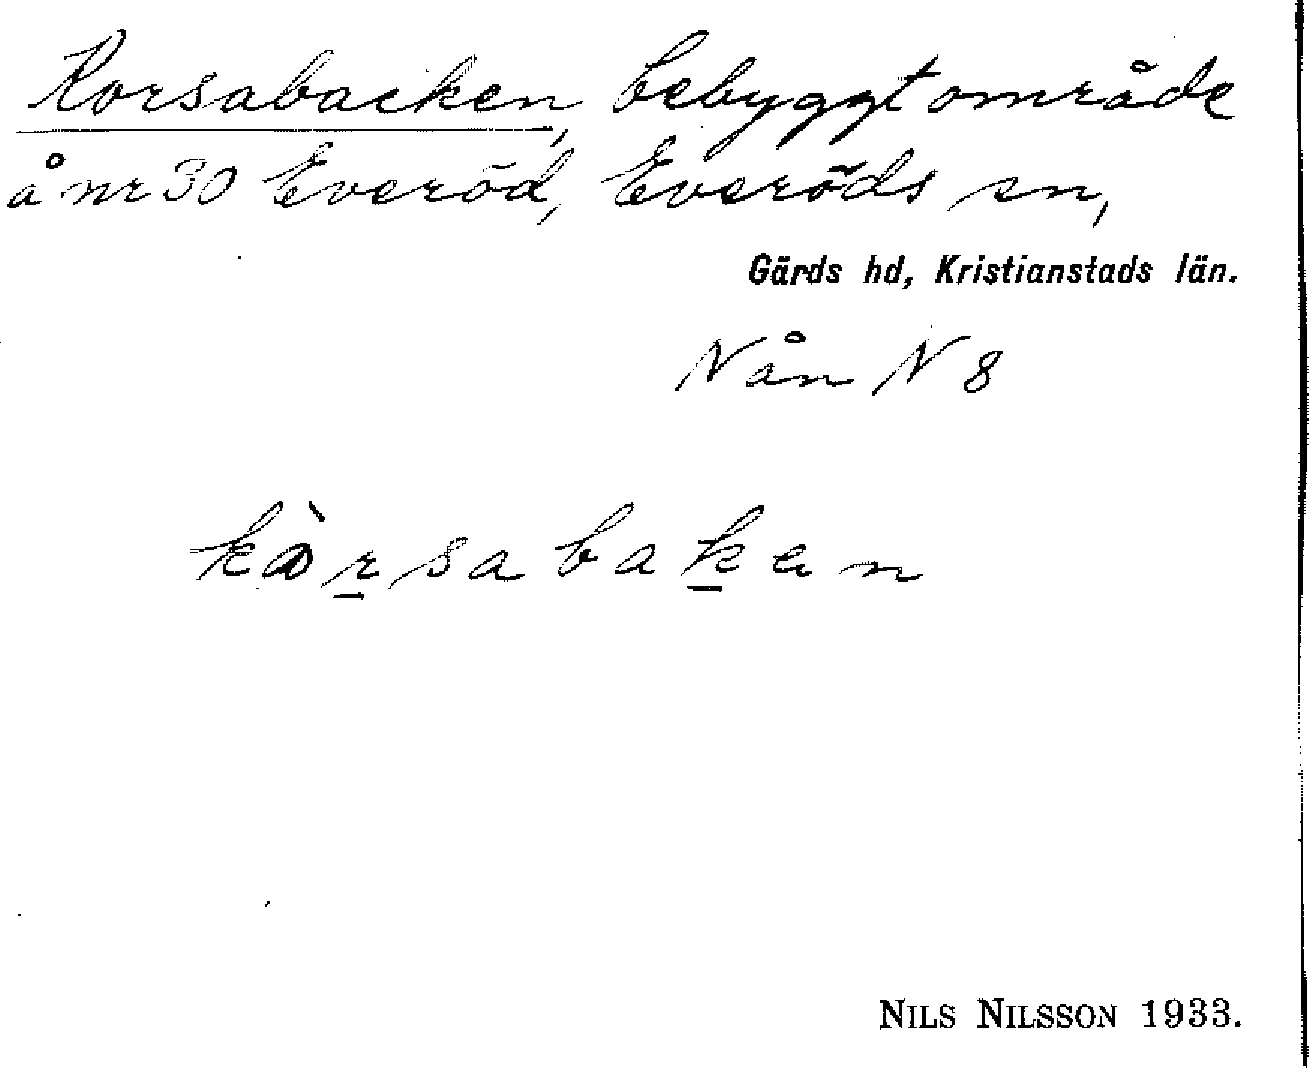 Korsabacken, bebyggt område
å nr 30 Everöd, Everöds sn,
Gärds hd, Kristianstads län.
Nån N 8
kòrsabaken
NILS NILSSON 1933.